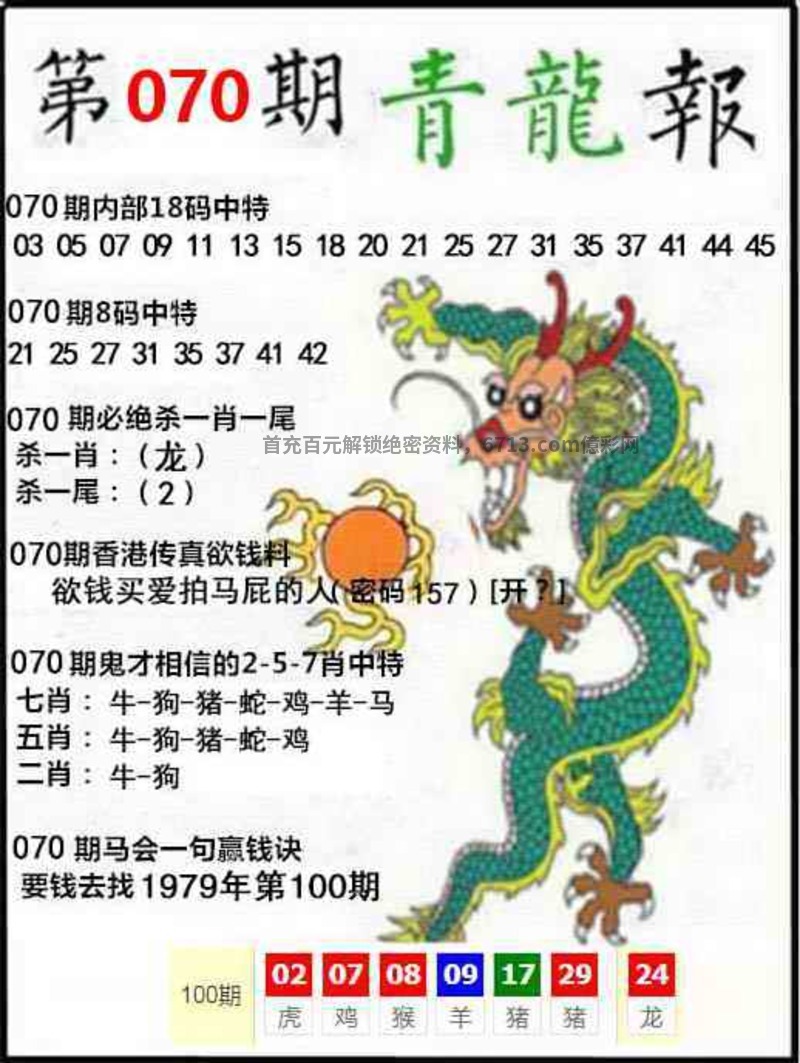 第070期青龍報
070期内部18码中特
03 05 07 09 11 13 15 18 20 21 25 27 31 35 37 41 44 45
070期8码中特
21 25 27 31 35 37 41 42
070期必绝杀一肖一尾
首充百元解锁绝密资料，6713.com億彩网
杀一肖：（龙）
杀一尾：（2）
070期香港传真欲钱料
欲钱买爱拍马屁的人（密码157）[开？]
070期鬼才相信的2-5-7肖中特
七肖：牛-狗-猪-蛇-鸡-羊-马
五肖：牛-狗-猪-蛇-鸡
二肖：牛-狗
070期马会一句赢钱诀
要钱去找1979年第100期
100期 02 07 08 09 17 29 24
虎 鸡 猴 羊 猪 猪 龙